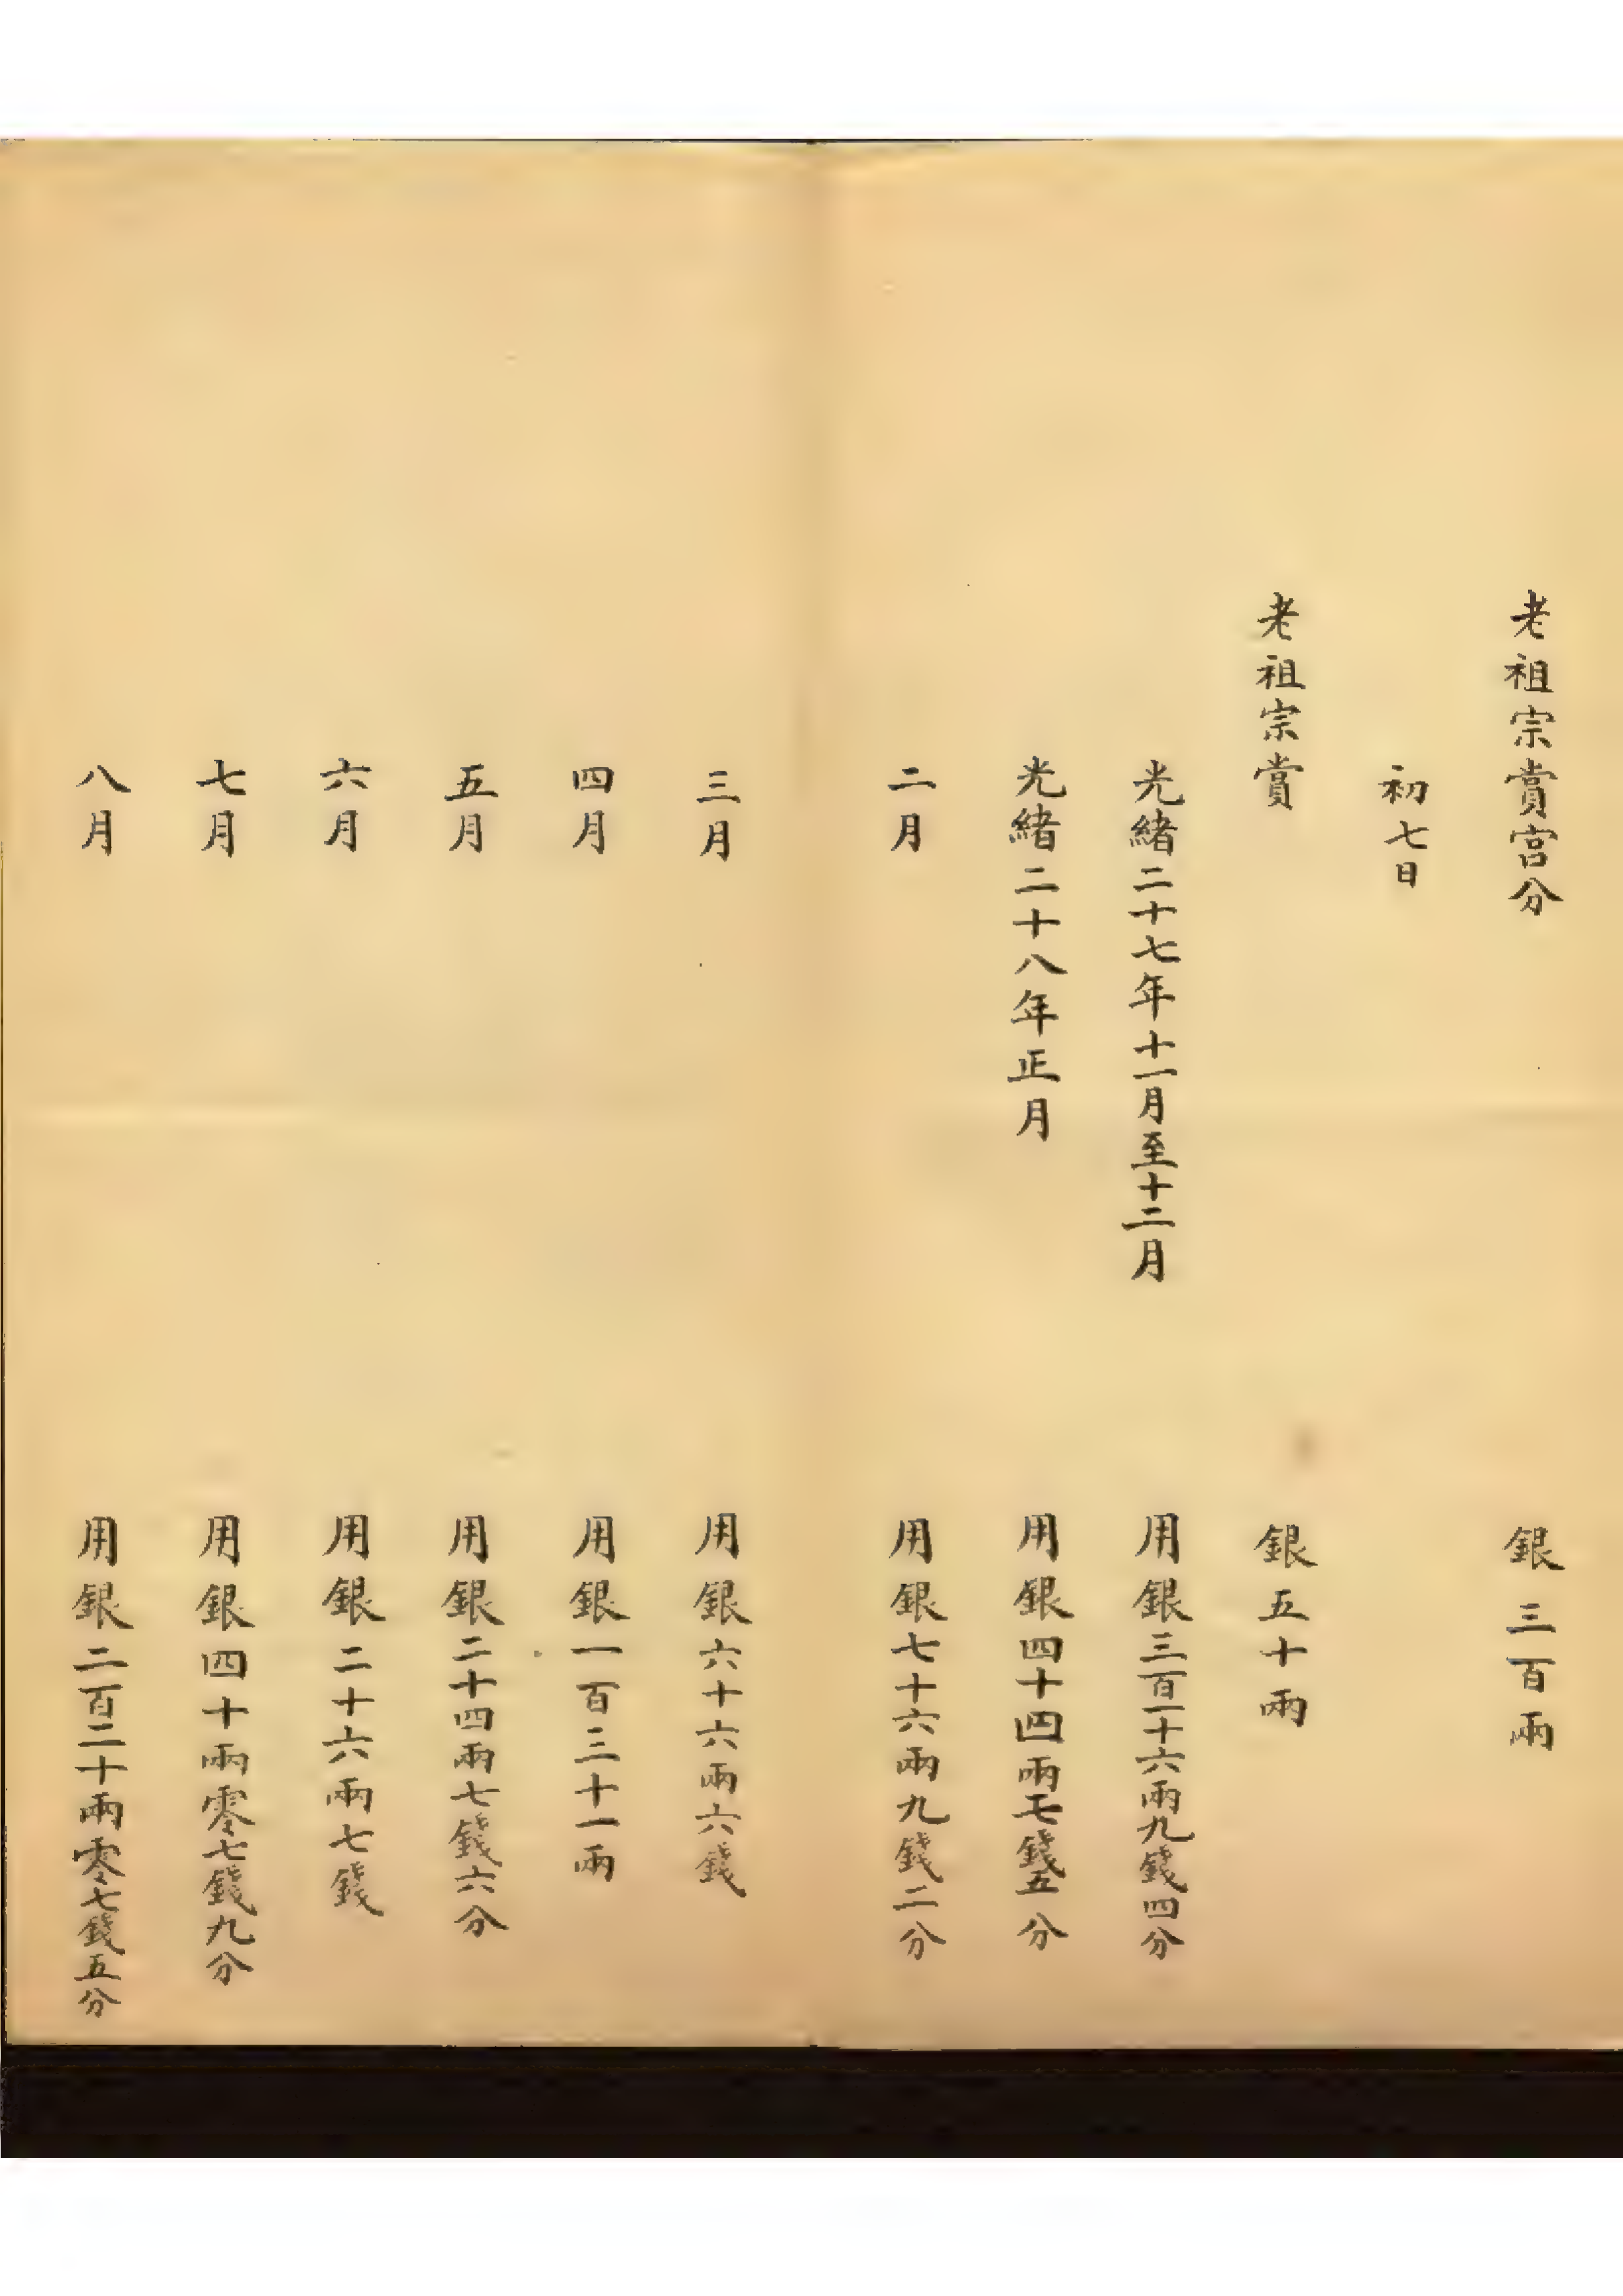 老祖宗賞宮分 銀三百兩
初七日
老祖宗賞 銀五十兩
光緒二十七年十一月至十二月 用銀三百一十六兩九錢四分
光緒二十八年正月 用銀四十四兩七錢五分
二月 用銀七十六兩九錢二分
三月 用銀六十六兩六錢
四月 用銀一百三十一兩
五月 用銀二十四兩七錢六分
六月 用銀二十六兩七錢
七月 用銀四十兩零七錢九分
八月 用銀二百二十兩零七錢五分